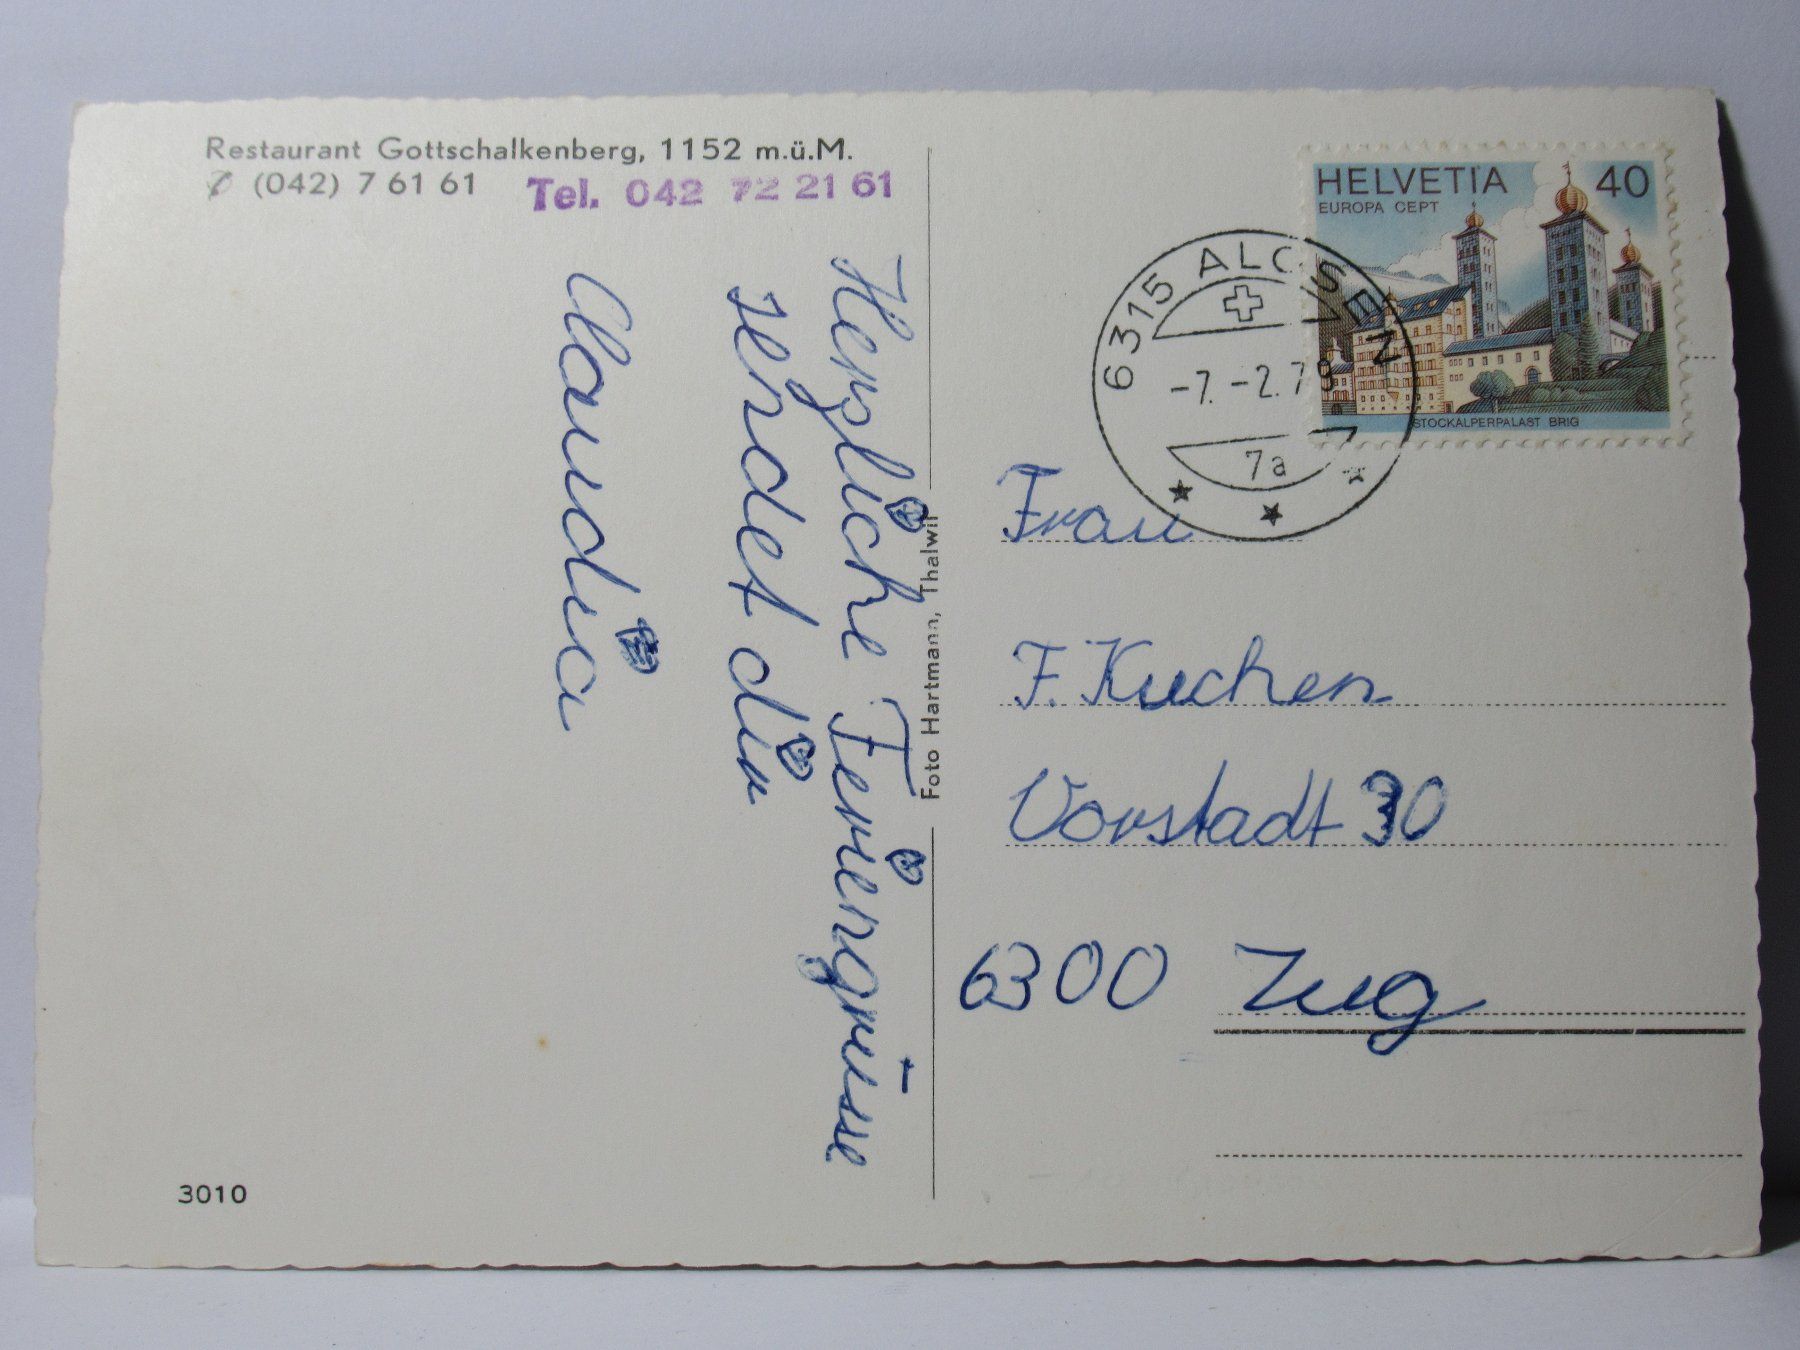 Restaurant Gottschalkenberg, 1152 m.ü.M.
(042) 7 61 61
Tel. 042 72 21 61
Herzliche Feriengrüsse
sendet dir
Claudia
Foto Hartmann, Thalwil
3010
HELVETIA 40
EUROPA CEPT
STOCKALPERPALAST BRIG
6315 ALOSEN
-7.-2.79
7a
Frau
F. Kuchen
Vorstadt 30
6300 Zug